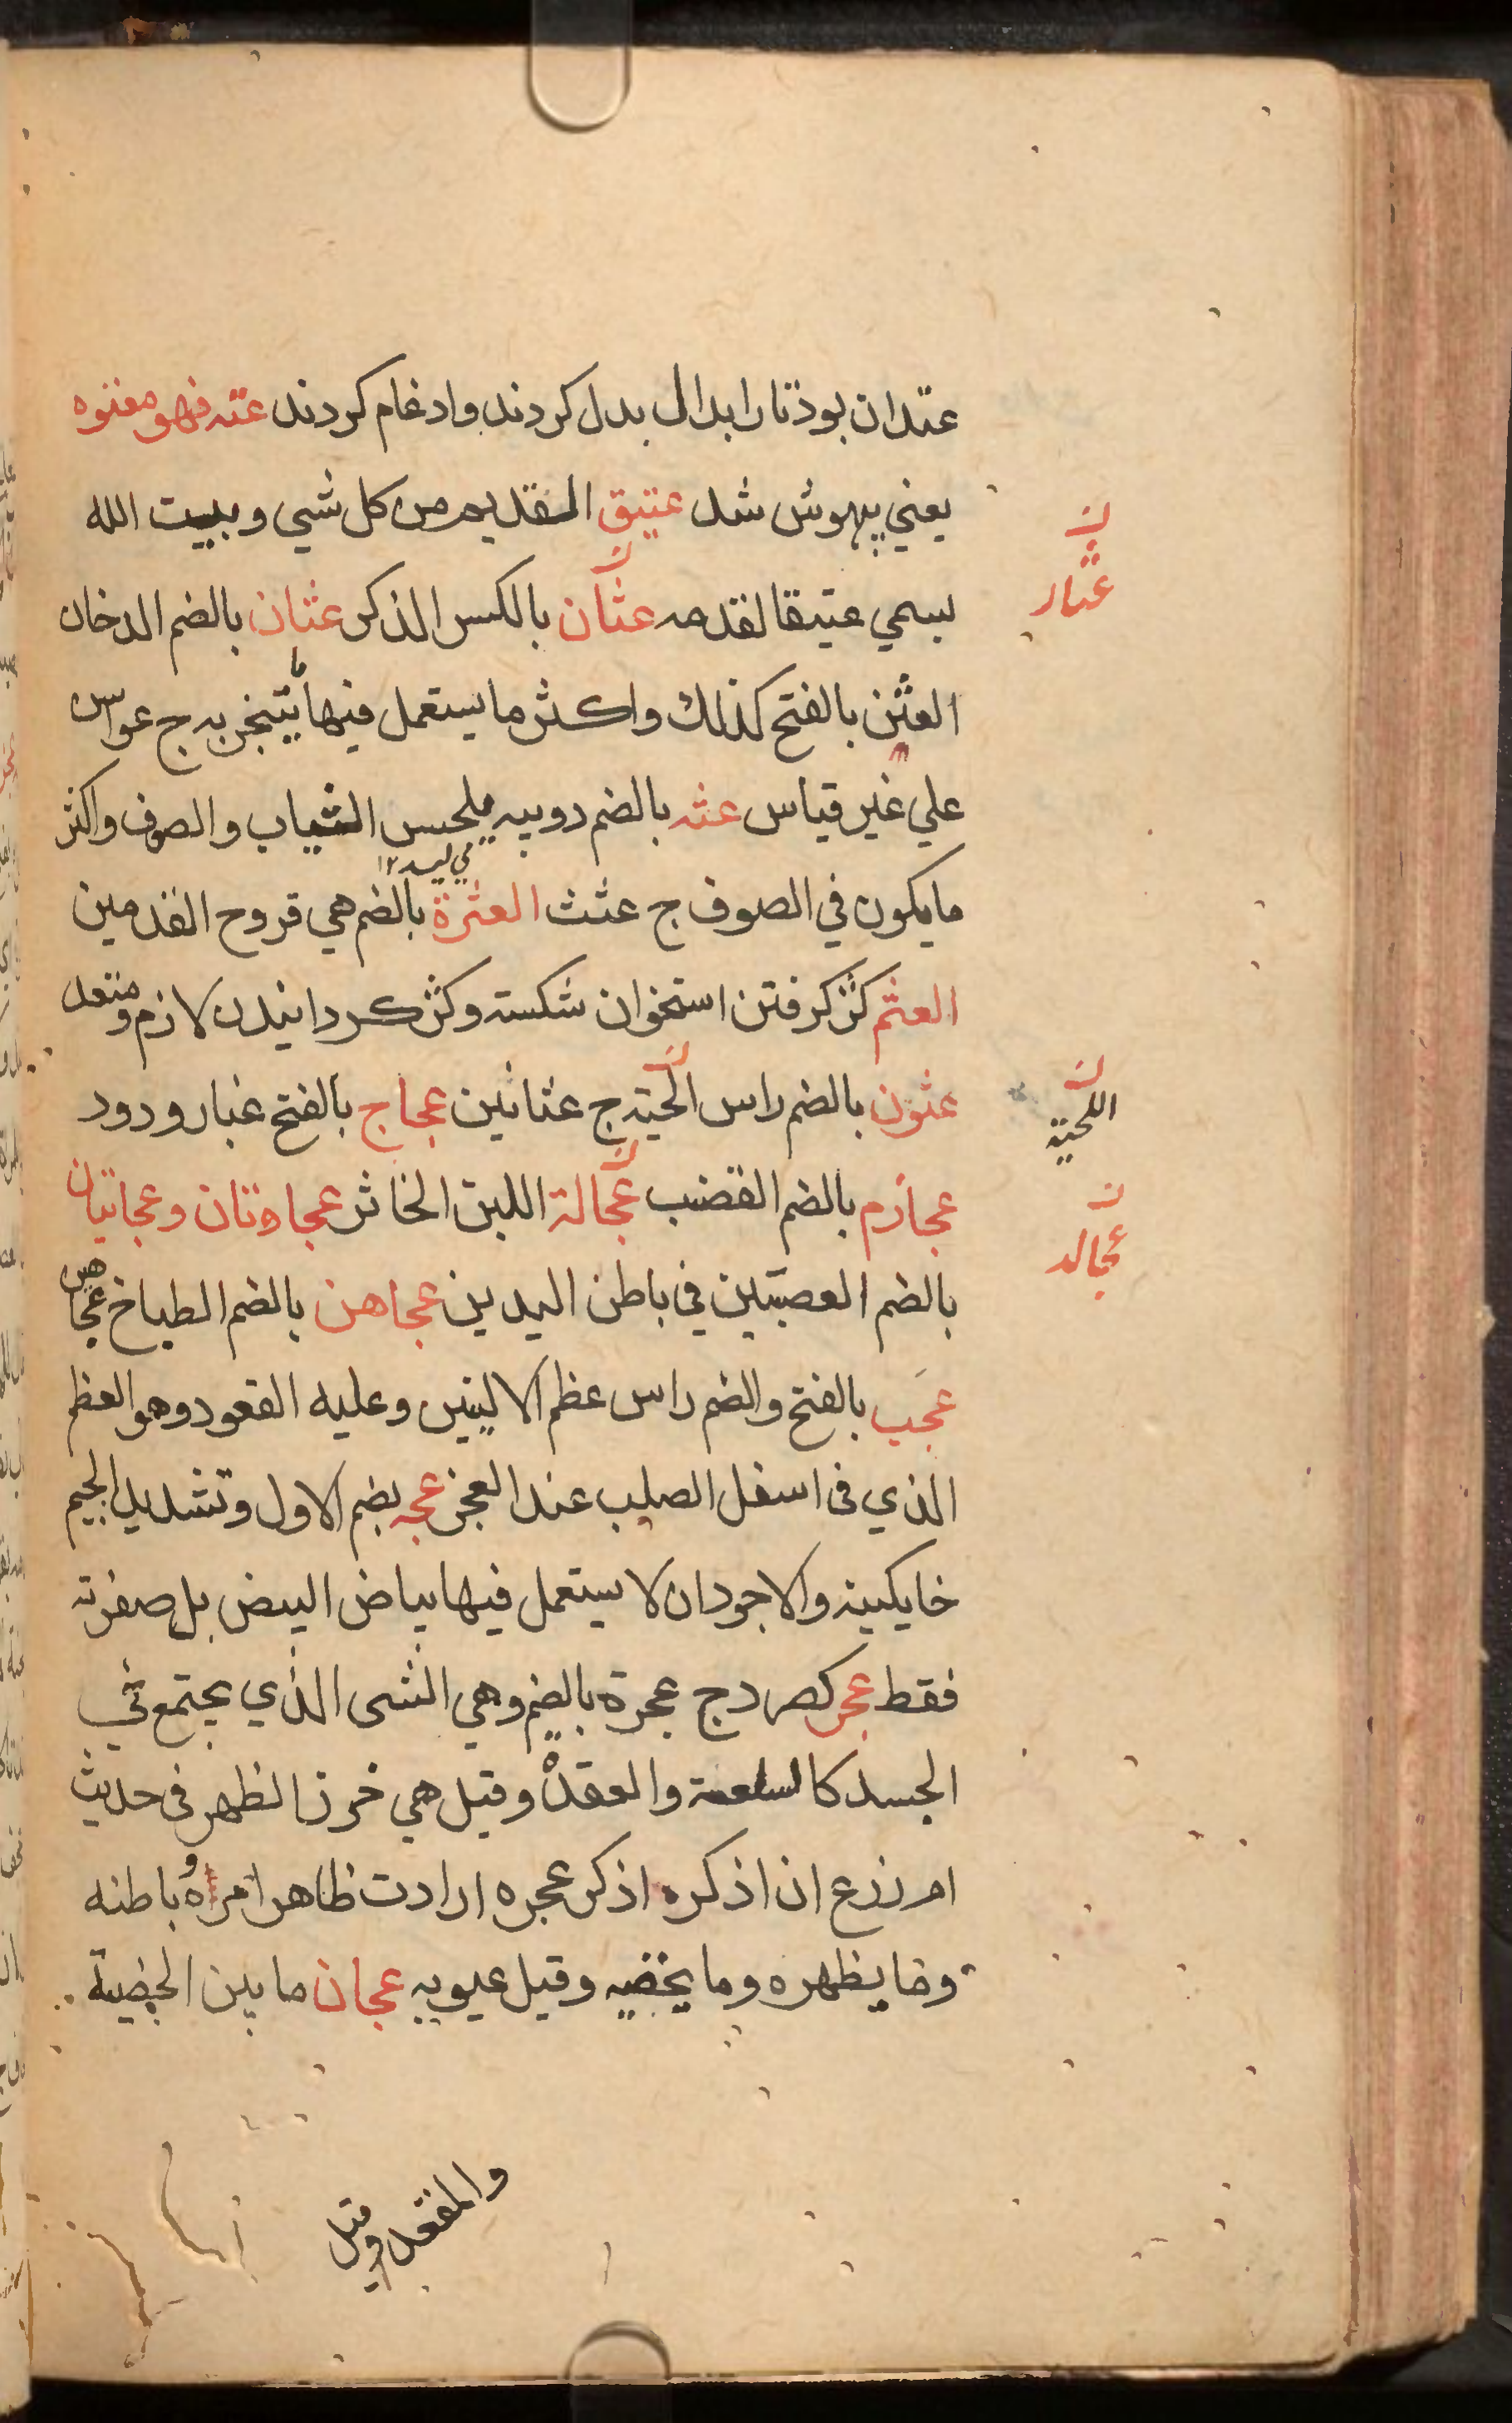 عتدان بود تا را بدال بدل کردند وادغام کردند عته فهو معتوه
يعني بيهوش شد عتيق القديم من كل شي وبيت الله
يسمي عتيقا لقدمه عثان بالكسر الذكر عثان بالضم الدخان
العثن بالفتح كذلك واكثر ما يستعمل فيما يتبخر به ج عواس
علي غير قياس عثه بالضم دويبه يلحس الثياب والصوف واكثر
مي ليسد ١٢
ما يكون في الصوف ج عثث العثرة بالضم هي قروح القدمين
العثم كژ كرفتن استخوان شكسته وكژ كردانيدن لازم ومتعد
عثون بالضم راس الحيته ج عثانين عجاج بالفتح غبار ودود
عجازم بالضم القضب عجالة اللبن الخاثر عجاوتان وعجايتان
بالضم العصبتين في باطن اليدين عجاهن بالضم الطباخ عجاهن
عجب بالفتح والضم راس عظم الاليتين وعليه القعود وهو العظم
الذي فى اسفل الصلب عند العجز عجه بضم الاول وتشديد الجيم
خايكينه والاجود ان لا يستعمل فيها بياض البيض بل صفرته
فقط عجر كصرد ج عجرة بالضم وهي الشى الذي يجتمع في
الجسد كالسلعة والعقدة وقيل هي خرز الظهر فى حديث
ام زرع ان اذكره اذكر عجره ارادت ظاهر امراه وباطنه
وما يظهره وما يخفيه وقيل عيوبه عجان ما بين الخصية
والمقعد وقيل
ن
عثار
ن
اللحية
ن
عجالد